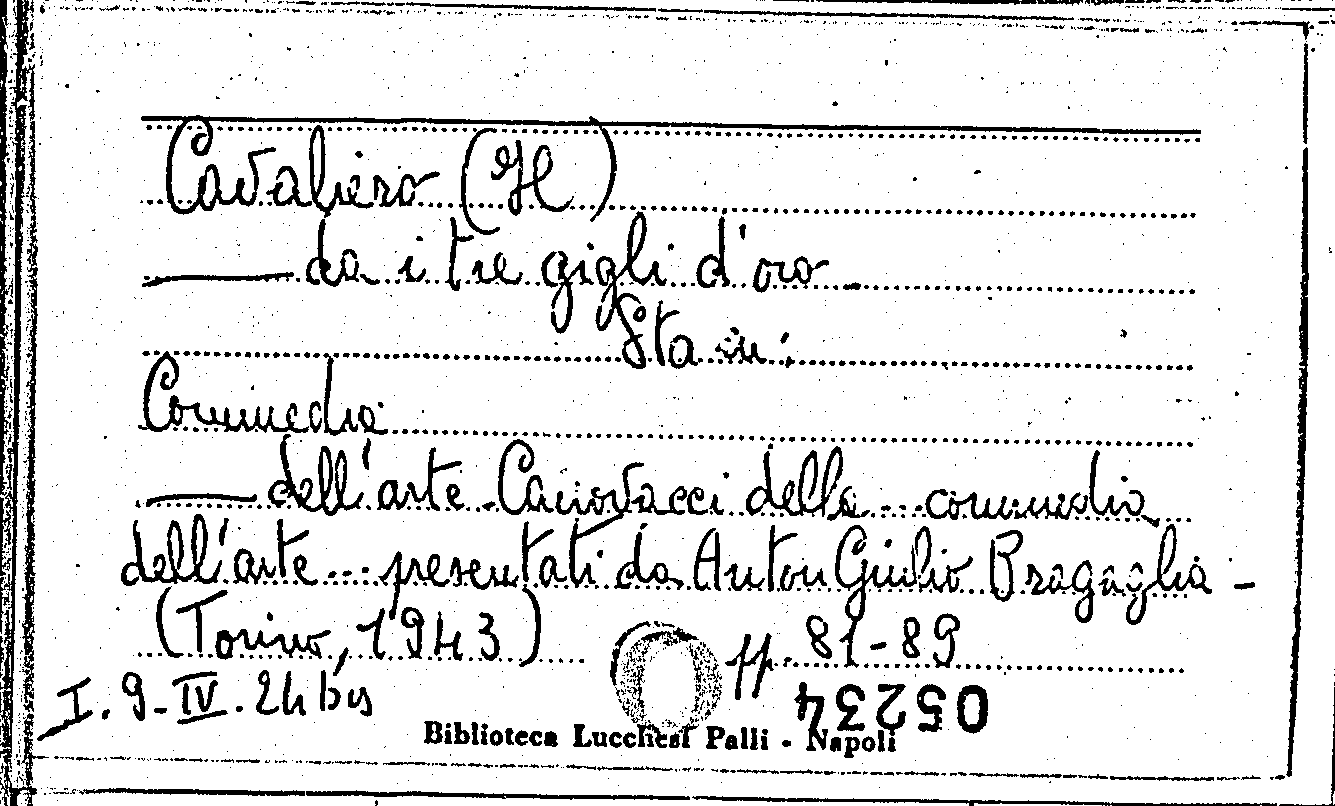 Cavaliero (Il)
—— da i tre gigli d'oro -
Sta in:
Commedia
—— dell'arte - Canovacci della ... commedia
dell'arte ... presentati da Anton Giulio Bragaglia -
(Torino, 1943) pp. 81-89
I. 9-IV. 24 bis
05234
Biblioteca Lucchesi Palli - Napoli